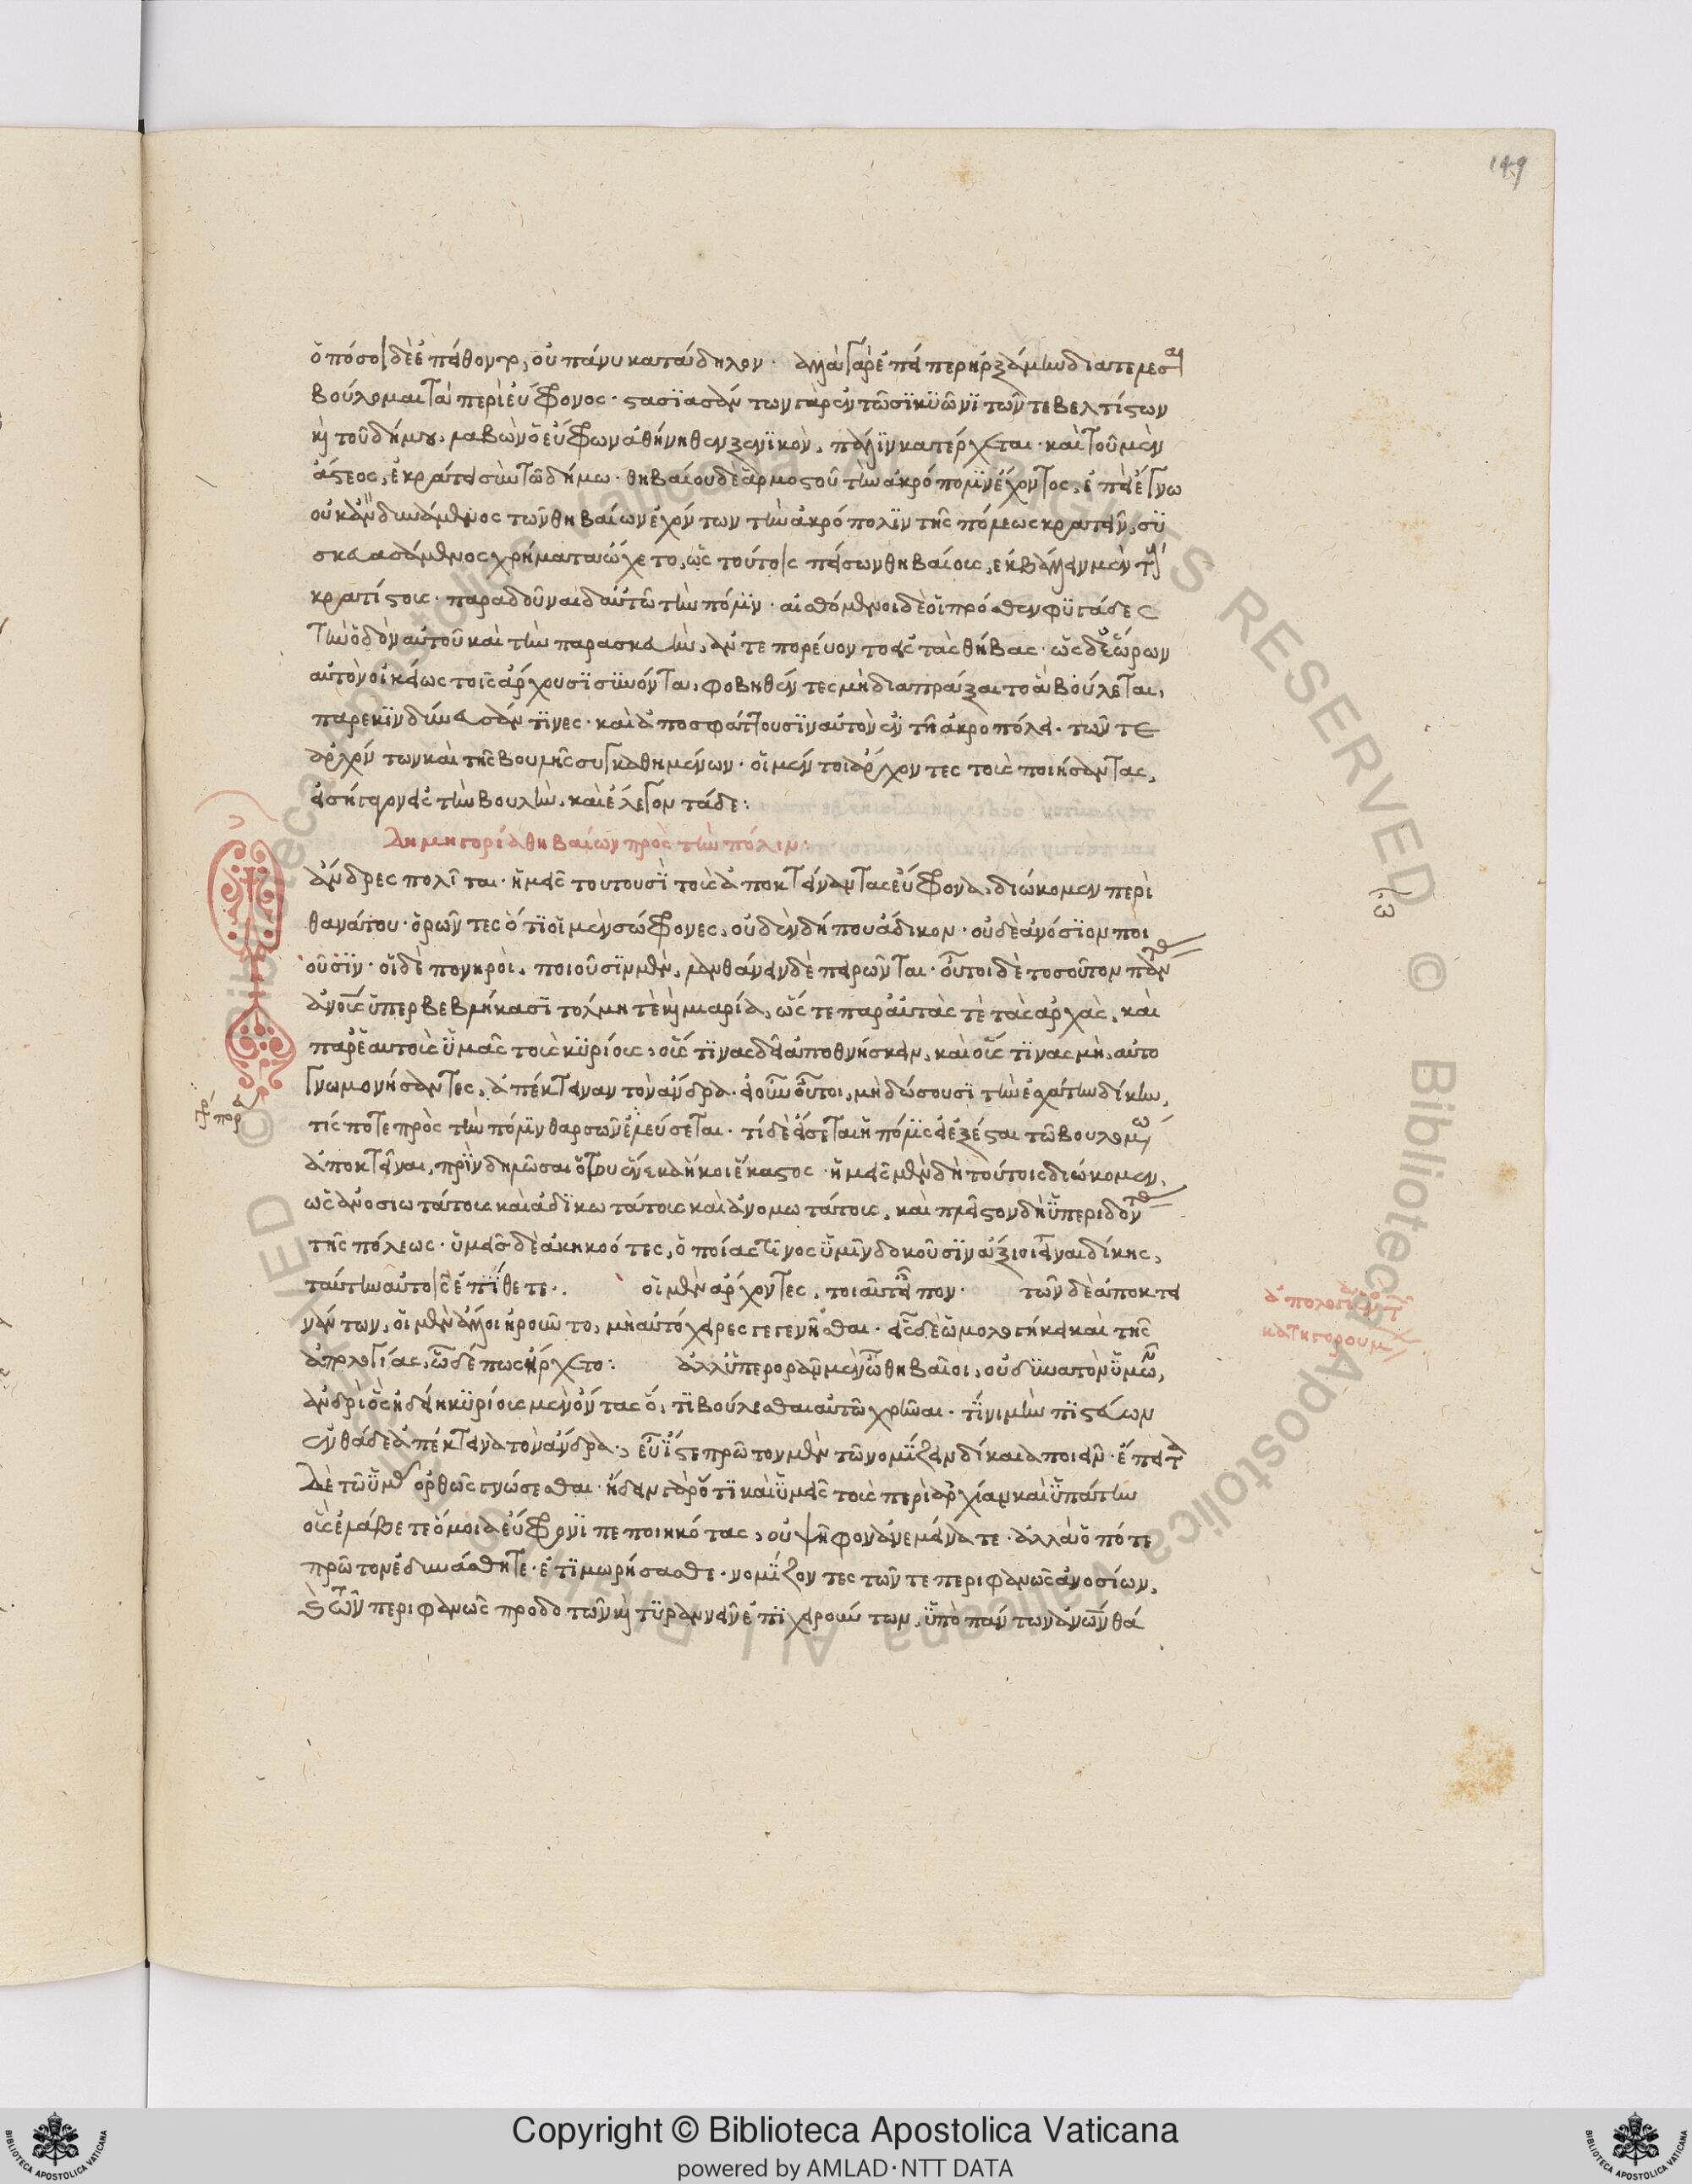 149
ὁπόσοι δὲ ἐπείθοντο, οὐ πάνυ κατάδηλον. ἀλλὰ γὰρ ἐπείπερ ἠρξάμην διατελέσαι
βούλομαι τὰ περὶ εὔφρονος. στασϊασάντων γὰρ ἐν τῶ σϊκϋῶνϊ τῶν τε βελτίστων
καὶ τοῦ δήμου, λαβὼν ὁ εὔφρων ἀθήνηθεν ξενϊκὸν, πάλϊν κατέρχεται. καὶ τοῦ μὲν
ἄστεος, ἐκράτει σὺν τῶ δήμω. θηβαίου δὲ ἁρμοστοῦ τὴν ἀκρόπολϊν ἔχοντος, ἐπεὶ ἔγνω
οὐκ ἂν δυνάμενος τῶν θηβαίων ἐχόντων τὴν ἀκρόπολϊν τῆς πόλεως κρατεῖν, συ
σκευασάμενος χρήματα ὤχετο, ὡς τούτοις πείσων θηβαίους, ἐκβάλλειν μὲν τοὺς
κρατίστους. παραδοῦναι δ' αὐτῶ τὴν πόλϊν. αἰσθόμενοι δὲ οἱ πρόσθεν φϋγάδες
τὴν ὁδὸν αὐτοῦ καὶ τὴν παρασκευὴν, ἀντεπορεύοντο εἰς τὰς θήβας. ὡς δ' ἑώρων
αὐτὸν οἰκείως τοῖς ἄρχουσϊ σϋνόντα, φοβηθέντες μὴ διαπράξαιτο ἃ βούλεται,
παρεκϊνδύνευσάν τϊνες. καὶ ἀποσφάττουσϊν αὐτὸν ἐν τῆ ἀκροπόλει. τῶν τε
ἀρχόντων καὶ τῆς βουλῆς συγκαθημένων. οἱ μέντοι ἄρχοντες τοὺς ποιήσαντας,
εἰσήγαγον εἰς τὴν βουλὴν, καὶ ἔλεγον τάδε:
Δημηγορία θηβαίων πρὸς τὴν πόλιν:
ἄνδρες πολῖται. ἡμεῖς τουτουσὶ τοὺς ἀποκτείναντας εὔφρονα, διώκομεν περὶ
θανάτου. ὁρῶντες ὅτϊ οἱ μὲν σώφρονες, οὐδὲν δήπου ἄδικον. οὐδὲ ἀνόσϊον ποι
οῦσϊν. οἱ δὲ πονηροὶ, ποιοῦσϊν μὲν, λανθάνειν δὲ πειρῶνται. οὗτοι δὲ τοσοῦτον πάντας
ἀνθρώπους ὑπερβεβλήκασϊ τόλμη τὲ καὶ μιαρία, ὥστε παρ' αὐτὰς τὲ τὰς ἀρχὰς, καὶ
παρ' ἑαυτοὺς ὑμᾶς τοὺς κϋρίους, οὕς τϊνας δεῖ ἀποθνήσκειν, καὶ οὕς τϊνας μὴ, αὐτο
γνωμονήσαντες, ἀπέκτειναν τὸν ἄνδρα. εἰ οὖν οὗτοι, μὴ δώσουσϊ τὴν ἐσχάτην δίκην,
τίς ποτε πρὸς τὴν πόλϊν θαρσῶν ἐλεύσεται. τί δὲ ἔσεται ἡ πόλϊς εἰ ἐξέσται τῶ βουλομένω
ἀποκτεῖναι, πρὶν δηλῶσαι ὅτου ἕνεκα ἥκοι ἕκαστος. ἡμεῖς μὲν δὴ τούτους διώκομεν,
ὡς ἀνοσιωτάτους καὶ ἀδϊκωτάτους καὶ ἀνομωτάτους, καὶ πλεῖστον δὴ ὑπεριδόντας
τῆς πόλεως. ὑμεῖς δὲ ἀκηκοότες, ὁποίας τϊνος ὑμῖν δοκοῦσϊν ἄξιοι εἶναι δίκης,
ταύτην αὐτοῖς ἐπίθετε. οἱ μὲν ἄρχοντες, τοιαῦτα εἶπον. τῶν δὲ ἀποκτει
νάντων, οἱ μὲν ἄλλοι ἠροῦντο, μὴ αὐτόχειρες γεγενῆσθαι. εἷς δὲ ὡμολογήκει καὶ τῆς
ἀπολογίας, ὧδέ πως ἤρχετο: ἀλλ' ὑπερορᾶν μὲν ὦ θηβαῖοι, οὐ δϋνατὸν ὑμῶν,
ἀνδρὶ ὃς ἠδείη κϋρίους μὲν ὄντας ὅ, τϊ βούλεσθαι αὐτῶ χρῆσθαι. τίνι μὴν πϊστεύων
ἐνθάδε ἀπέκτεινα τὸν ἄνδρα, εὖ ἴστε πρῶτον μὲν τῶ νομίζειν δίκαια ποιεῖν. ἔπειτα
δὲ τῶ ὑμᾶς ὀρθῶς γνώσεσθαι. ἤδειν γὰρ ὅτϊ καὶ ὑμεῖς τοὺς περὶ ἀρχίαν καὶ ὑπάτην
οὓς ἐλάβετε ὅμοια εὔφρονϊ πεποιηκότας, οὐ ψῆφον ἀνεμείνατε. ἀλλὰ ὁπότε
πρῶτον ἐδυνάσθητε. ἐτϊμωρήσασθε. νομίζοντες τῶν τε περιφανῶς ἀνοσίων,
καὶ τῶν περιφανῶς προδοτῶν καὶ τϋραννεῖν ἐπϊχειρούντων, ὑπὸ πάντων ἀνθρώπων θά
ἀπολογία ἑνὸς τῶν
κατηγορουμένων
Copyright © Biblioteca Apostolica Vaticana
powered by AMLAD·NTT DATA